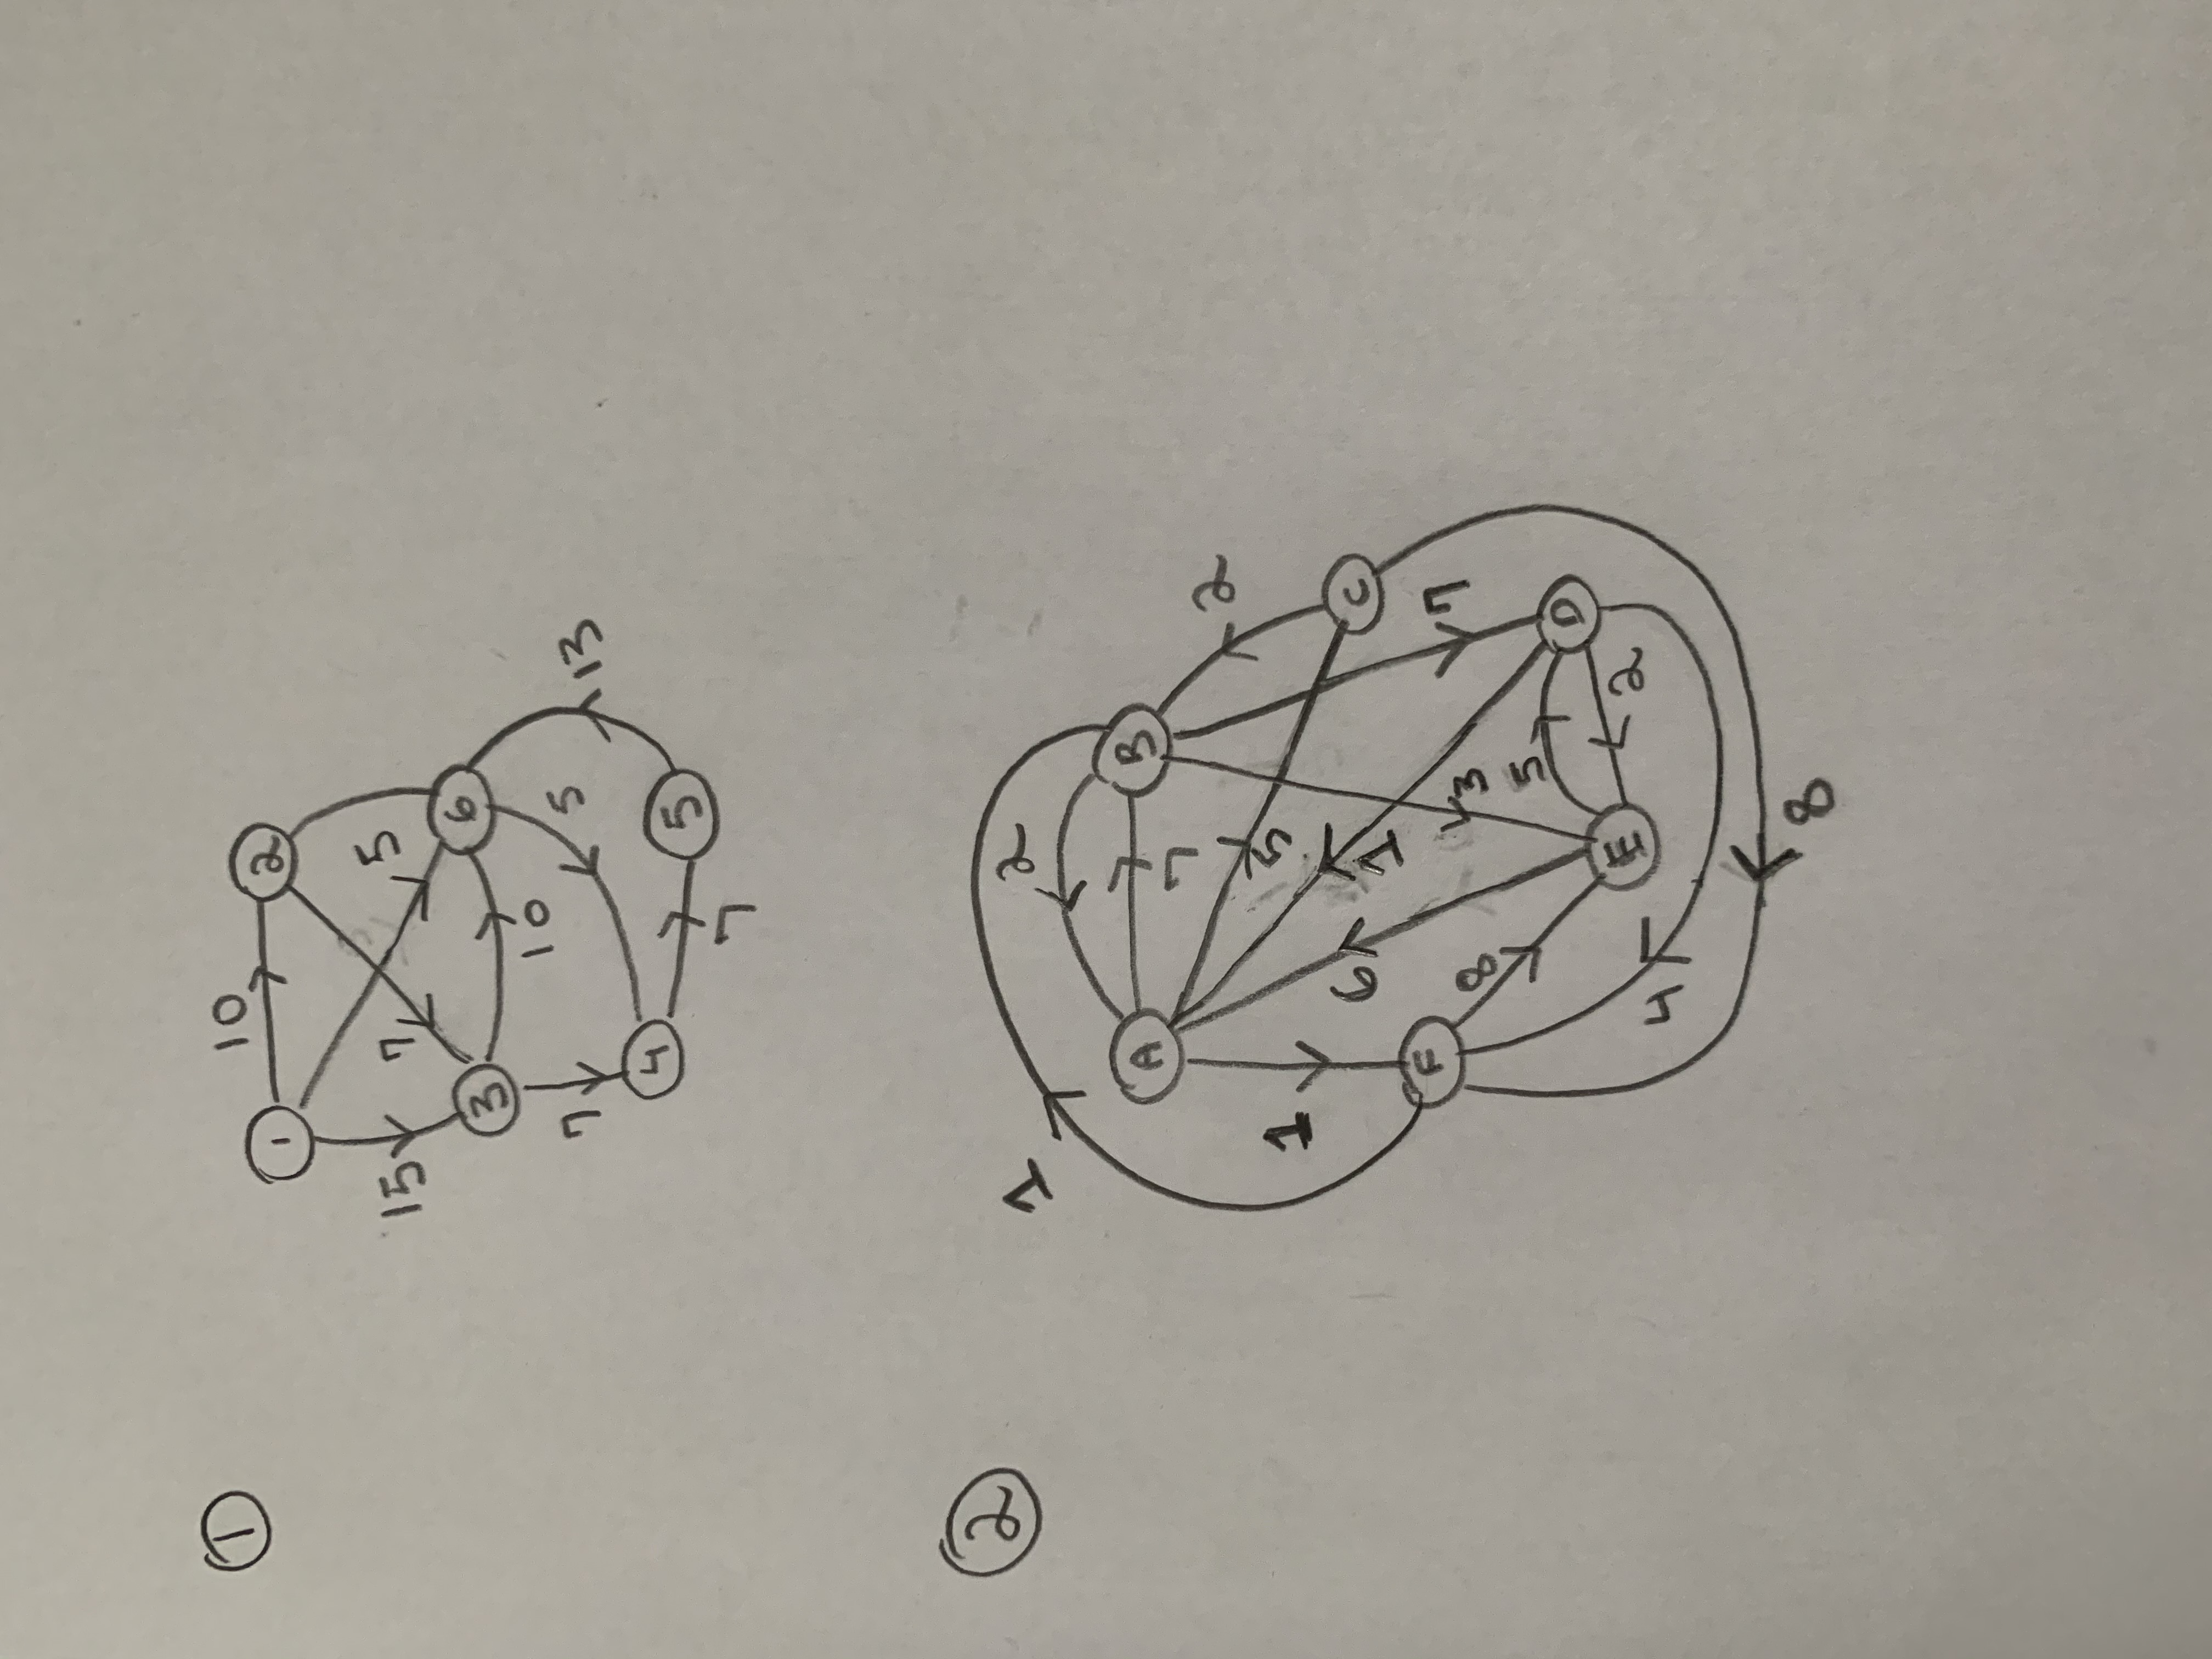 1
10
1 2
15 7 5
3 6
10
7 5 13
4 5
7
2
1 2
A B
7
2
5
1
6 C
1
F 7
8 3
5
D
E
2
4
8